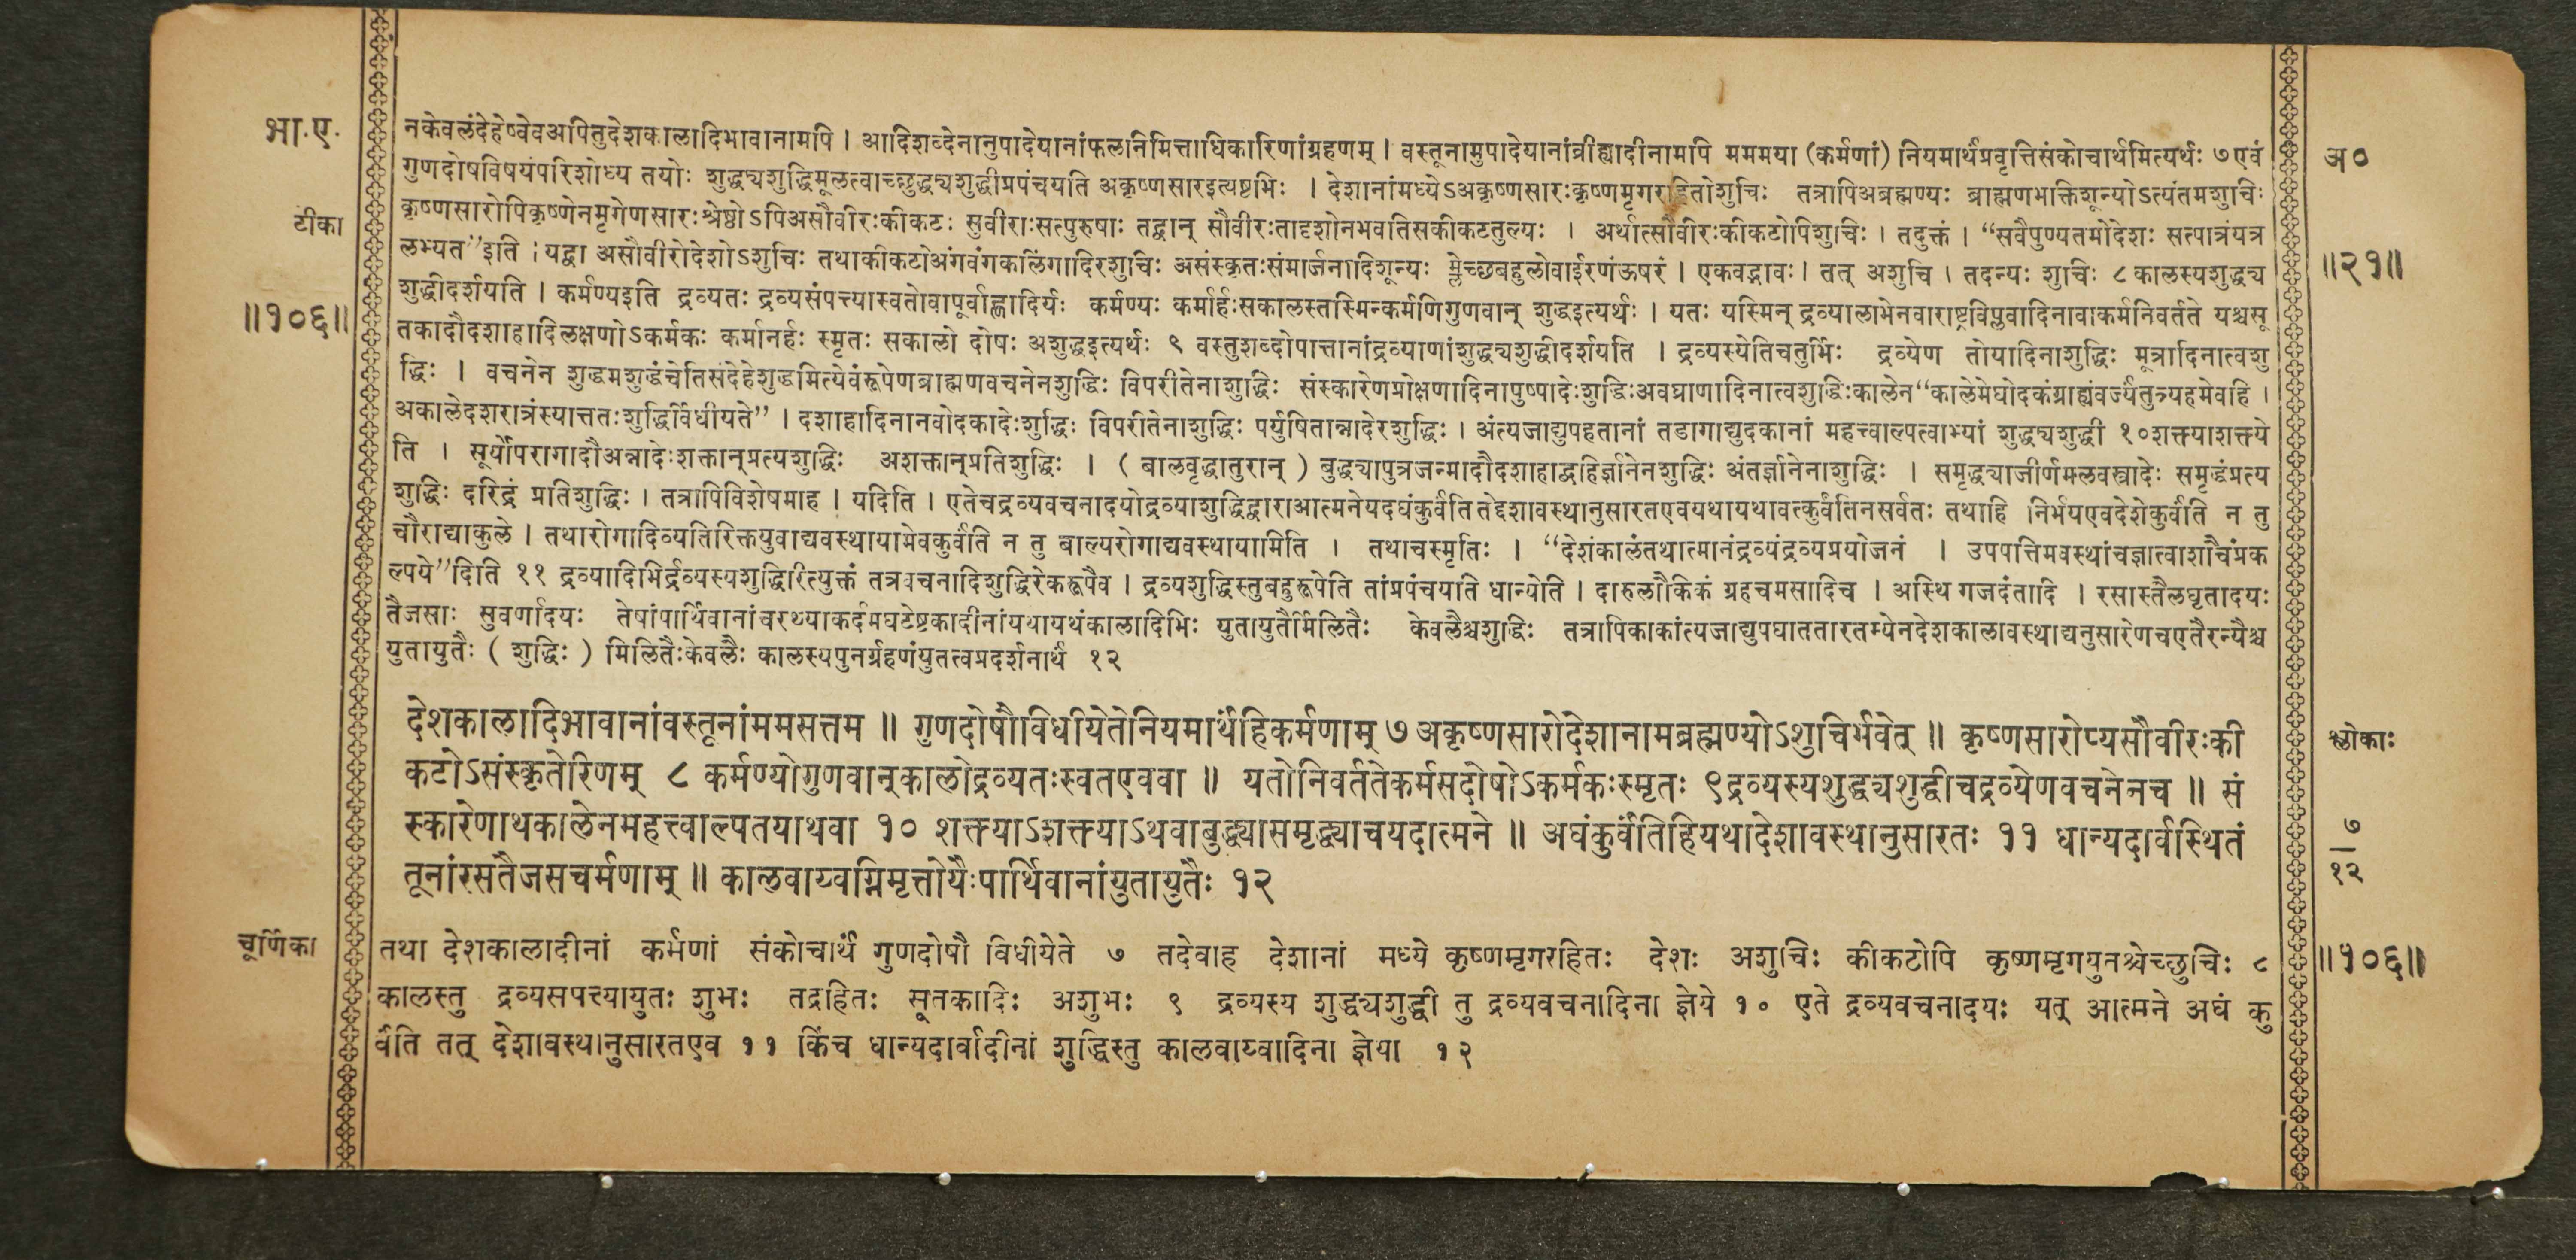 भा.ए.
नकेवलंदेहेष्वेवअपितुदेशकालादिभावानामपि । आदिशब्देनानुपादेयानांफलनिमित्ताधिकारिणांग्रहणम् । वस्तूनामुपादेयानांव्रीह्यादीनामपि मममया (कर्मणां) नियमार्थंप्रवृत्तिसंकोचार्थमित्यर्थः ७ एवं
अ०
गुणदोषविषयंपरिशोध्य तयोः शुद्ध्यशुद्धिमूलत्वाच्छुद्ध्यशुद्धीप्रपंचयति अकृष्णसारइत्यष्टभिः । देशानांमध्येऽअकृष्णसारःकृष्णमृगरहितोशुचिः तत्रापिअब्रह्मण्यः ब्राह्मणभक्तिशून्योऽत्यंतमशुचिः
टीका
कृष्णसारोपिकृष्णेनमृगेणसारःश्रेष्ठोऽपिअसौवीरःकीकटः सुवीराःसत्पुरुषाः तद्वान् सौवीरःतादृशोनभवतिसकीकटतुल्यः । अर्थात्सौवीरःकीकटोपिशुचिः । तदुक्तं । “सवैपुण्यतमोदेशः सत्पात्रंयत्र
लभ्यत”इति । यद्वा असौवीरोदेशोऽशुचिः तथाकीकटोअंगवंगकलिंगादिरशुचिः असंस्कृतःसंमार्जनादिशून्यः म्लेच्छबहुलोवाईरणंऊषरं । एकवद्भावः । तत् अशुचि । तदन्यः शुचिः ८ कालस्यशुद्ध्य
॥२१॥
शुद्धीदर्शयति । कर्मण्यइति द्रव्यतः द्रव्यसंपत्त्यास्वतोवापूर्वाह्णादिर्यः कर्मण्यः कर्मार्हःसकालस्तस्मिन्कर्मणिगुणवान् शुद्धइत्यर्थः । यतः यस्मिन् द्रव्यालाभेनवाराष्ट्रविप्लवादिनावाकर्मनिवर्तते यश्चसू
॥१०६॥
तकादौदशाहादिलक्षणोऽकर्मकः कर्मानर्हः स्मृतः सकालो दोषः अशुद्धइत्यर्थः ९ वस्तुशब्दोपात्तानांद्रव्याणांशुद्ध्यशुद्धीदर्शयति । द्रव्यस्येतिचतुर्भिः द्रव्येण तोयादिनाशुद्धिः मूत्रादिनात्वशु
द्धिः । वचनेन शुद्धमशुद्धंचेतिसंदेहेशुद्धमित्येवंरूपेणब्राह्मणवचनेनशुद्धिः विपरीतेनाशुद्धिः संस्कारेणप्रोक्षणादिनापुष्पादेःशुद्धिःअवघ्राणादिनात्वशुद्धिःकालेन“कालेमेघोदकंग्राह्यंवर्ज्यंतुत्र्यहमेवहि ।
अकालेदशरात्रंस्यात्ततःशुद्धिर्विधीयते” । दशाहादिनानवोदकादेःशुद्धिः विपरीतेनाशुद्धिः पर्युषितान्नादेरशुद्धिः । अंत्यजाद्युपहतानां तडागाद्युदकानां महत्त्वाल्पत्वाभ्यां शुद्ध्यशुद्धी १०शक्त्याशक्त्ये
ति । सूर्योपरागादौअन्नादेःशक्तान्प्रत्यशुद्धिः अशक्तान्प्रतिशुद्धिः । ( बालवृद्धातुरान् ) बुद्ध्यापुत्रजन्मादौदशाहाद्बहिर्ज्ञानेनशुद्धिः अंतर्ज्ञानेनाशुद्धिः । समृद्ध्याजीर्णमलवस्त्रादेः समृद्धंप्रत्य
शुद्धिः दरिद्रं प्रतिशुद्धिः । तत्रापिविशेषमाह । यदिति । एतेचद्रव्यवचनादयोद्रव्याशुद्धिद्वाराआत्मनेयदघंकुर्वंति तद्देशावस्थानुसारतएवयथायथावत्कुर्वंतिनसर्वतः तथाहि ।निर्भयएवदेशेकुर्वंति न तु
चौराद्याकुले । तथारोगादिव्यतिरिक्तयुवाद्यवस्थायामेवकुर्वंति न तु बाल्यरोगाद्यवस्थायामिति । तथाचस्मृतिः । “देशंकालंतथात्मानंद्रव्यंद्रव्यप्रयोजनं । उपपत्तिमवस्थांचज्ञात्वाशौचंप्रक
ल्पये”दिति ११ द्रव्यादिभिर्द्रव्यस्यशुद्धिरित्युक्तं तत्रवचनादिशुद्धिरेकरूपैव । द्रव्यशुद्धिस्तुबहुरूपेति तांप्रपंचयति धान्येति । दारुलौकिकं ग्रहचमसादिच । अस्थि गजदंतादि । रसास्तैलघृतादयः
तैजसाः सुवर्णादयः तेषांपार्थिवानांचरथ्याकर्दमघटेष्टकादीनांयथायथंकालादिभिः युतायुतैर्मिलितैः केवलैश्चशुद्धिः तत्रापिकाकांत्यजाद्युपघाततारतम्येनदेशकालावस्थाद्यनुसारेणचएतैरन्यैश्च
युतायुतैः ( शुद्धिः ) मिलितैःकेवलैः कालस्यपुनर्ग्रहणंयुतत्वप्रदर्शनार्थं १२
देशकालादिभावानांवस्तूनांममसत्तम ॥ गुणदोषौविधीयेतेनियमार्थंहिकर्मणाम् ७ अकृष्णसारोदेशानामब्रह्मण्योऽशुचिर्भवेत् ॥ कृष्णसारोप्यसौवीरःकी
श्लोकाः
कटोऽसंस्कृतेरिणम् ८ कर्मण्योगुणवान्कालोद्रव्यतःस्वतएववा ॥ यतोनिवर्ततेकर्मसदोषोऽकर्मकःस्मृतः ९द्रव्यस्यशुद्ध्यशुद्धीचद्रव्येणवचनेनच ॥ सं
स्कारेणाथकालेनमहत्त्वाल्पतयाथवा १० शक्त्याऽशक्त्याऽथवाबुद्ध्यासमृद्ध्याचयदात्मने ॥ अघंकुर्वंतिहियथादेशावस्थानुसारतः ११ धान्यदार्वस्थितं
७
तूनांरसतैजसचर्मणाम् ॥ कालवाय्वग्निमृत्तोयैःपार्थिवानांयुतायुतैः १२
१२
चूर्णिका
तथा देशकालादीनां कर्मणां संकोचार्थं गुणदोषौ विधीयेते ७ तदेवाह देशानां मध्ये कृष्णमृगरहितः देशः अशुचिः कीकटोपि कृष्णमृगयुनश्चेच्छुचिः ८
॥१०६॥
कालस्तु द्रव्यसपत्त्यायुतः शुभः तद्रहितः सूतकादिः अशुभः ९ द्रव्यस्य शुद्ध्यशुद्धी तु द्रव्यवचनादिना ज्ञेये १० एते द्रव्यवचनादयः यत् आत्मने अघं कु
र्वंति तत् देशावस्थानुसारतएव ११ किंच धान्यदार्वादीनां शुद्धिस्तु कालवाय्वादिना ज्ञेया १२